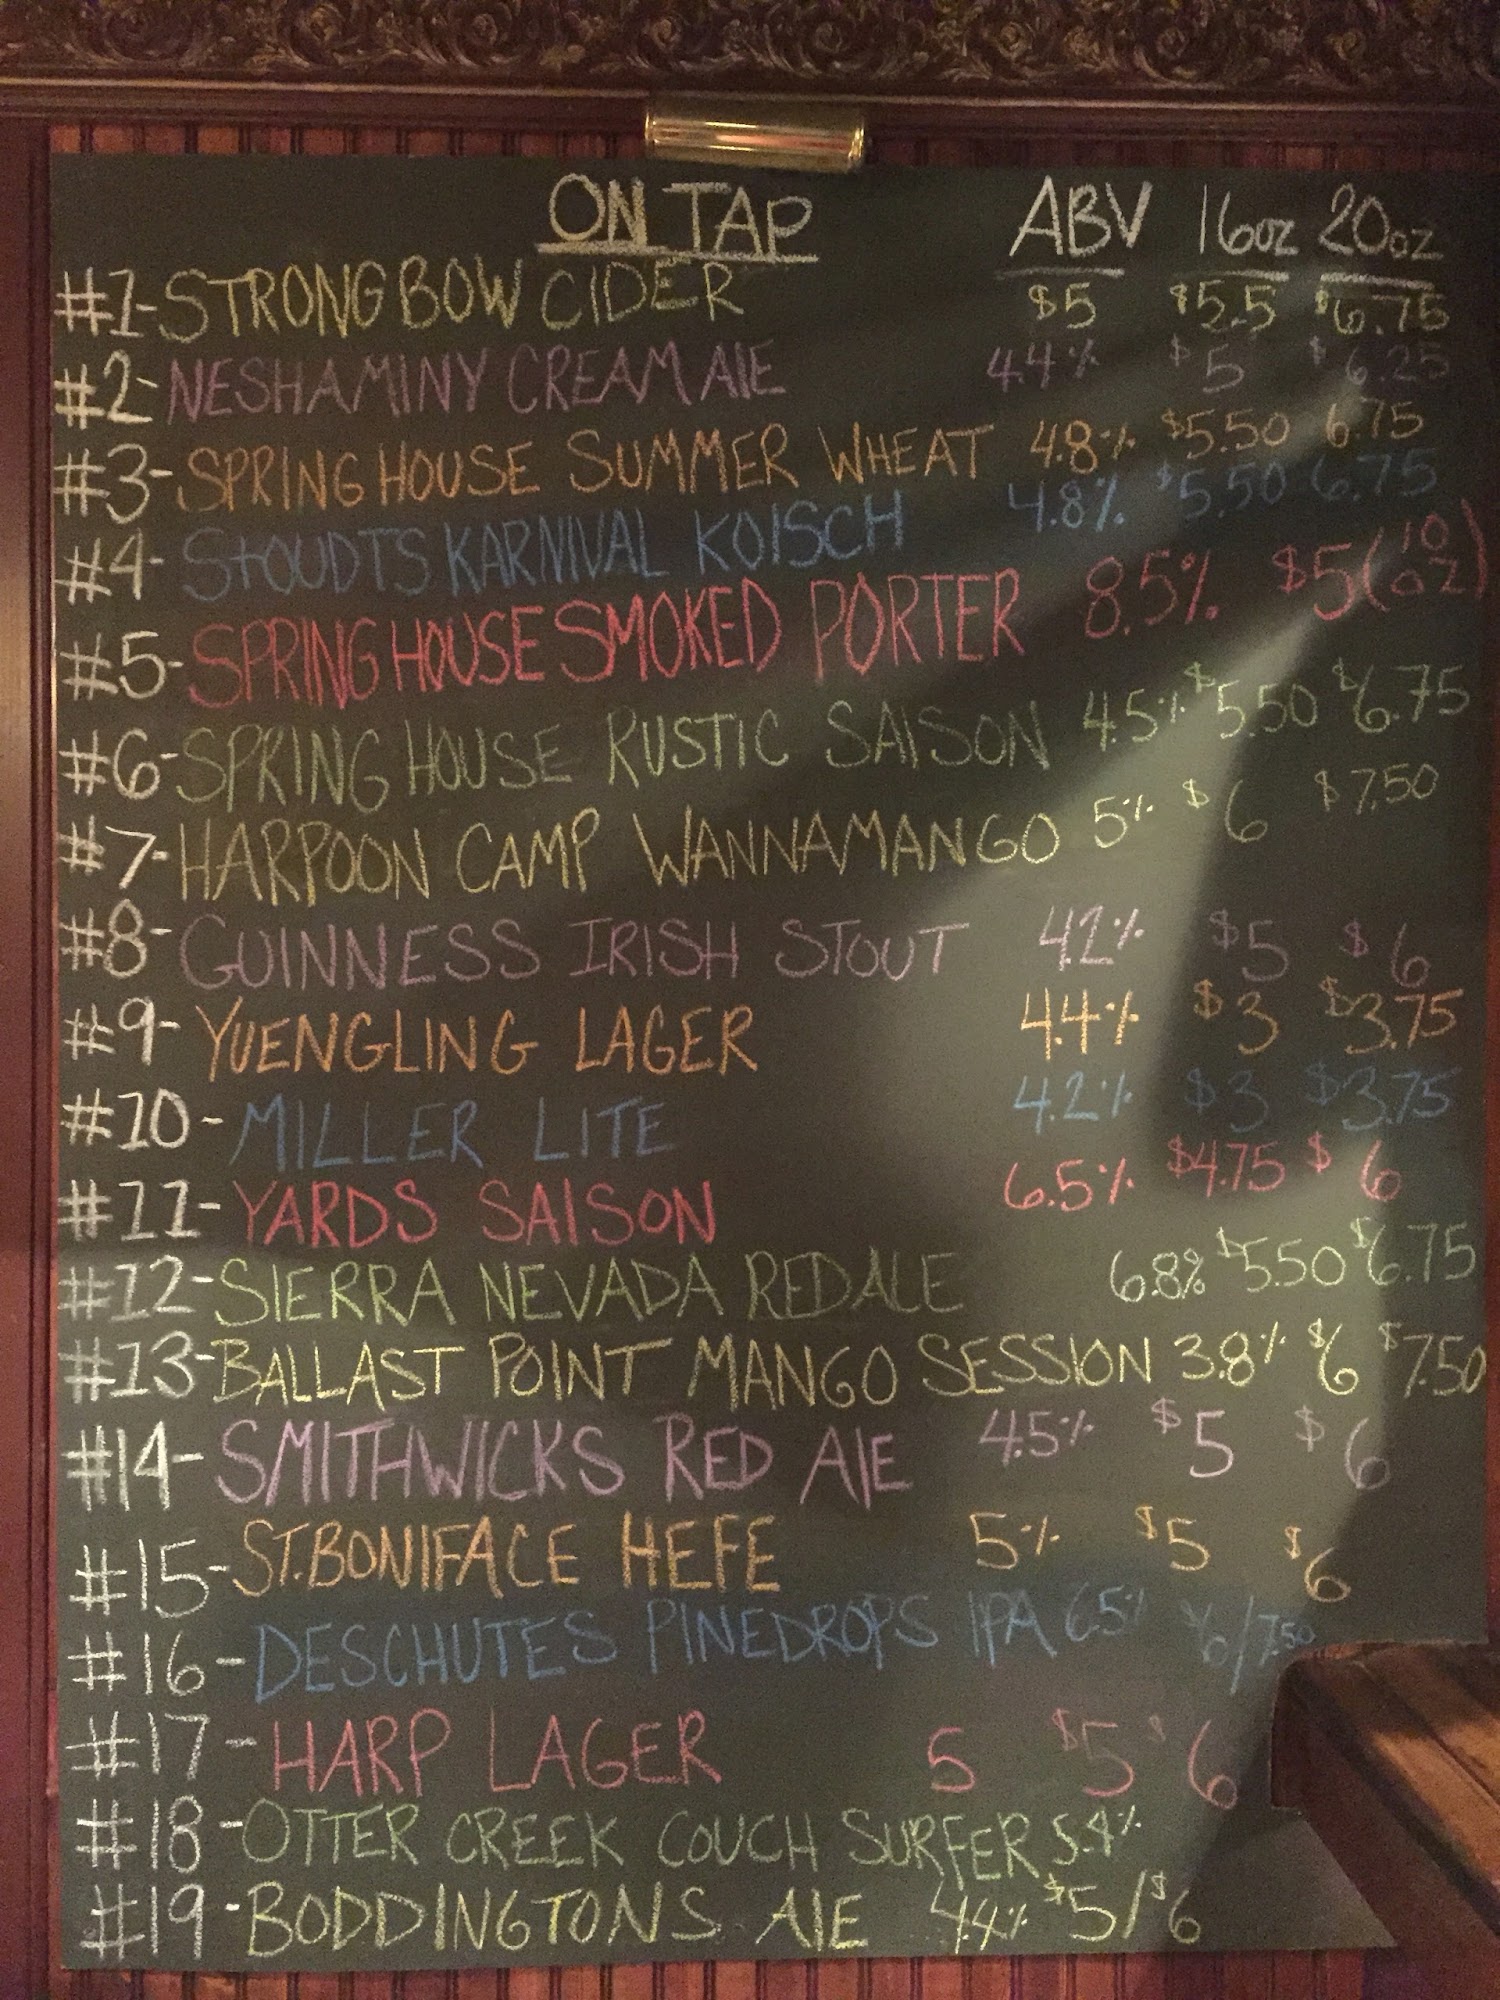 ON TAP ABV 16oz 20oz
#1- STRONGBOW CIDER $5 $5.5 $6.75
#2- NESHAMINY CREAM AlE 4.4% $5 $6.25
#3- SPRING HOUSE SUMMER WHEAT 4.8% $5.50 6.75
#4- STOUDTS KARNIVAL KOISCH 4.8% $5.50 6.75
#5- SPRING HOUSE SMOKED PORTER 8.5% $5 (10 oz)
#6- SPRING HOUSE RUSTIC SAISON 4.5% $5.50 $6.75
#7- HARPOON CAMP WANNAMANGO 5% $6 $7.50
#8- GUINNESS IRISH STOUT 4.2% $5 $6
#9- YUENGLING LAGER 4.4% $3 $3.75
#10- MILLER LITE 4.2% $3 $3.75
#11- YARDS SAISON 6.5% $4.75 $6
#12- SIERRA NEVADA RED ALE 6.8% $5.50 $6.75
#13- BALLAST POINT MANGO SESSION 3.8% $6 $7.50
#14- SMITHWICKS RED AlE 4.5% $5 $6
#15- ST. BONIFACE HEFE 5% $5 $6
#16- DESCHUTES PINEDROPS IPA 6.5% $6/7.50
#17- HARP LAGER 5 $5 $6
#18- OTTER CREEK COUCH SURFER 5.4%
#19- BODDINGTONS AlE 4.4% $5/$6